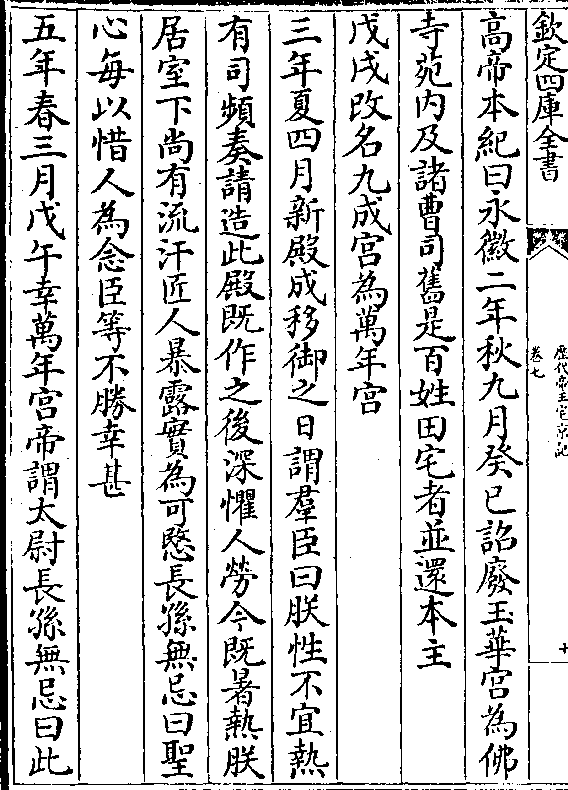 欽定四庫全書
歷代帝王宅京記
卷七
十
高帝本紀曰永徽二年秋九月癸巳詔廢玉華宮為佛
寺苑内及諸曹司舊是百姓田宅者並還本主
戊戌改名九成宮為萬年宮
三年夏四月新殿成移御之日謂羣臣曰朕性不宜熱
有司頻奏請造此殿既作之後深懼人勞今既暑熱朕
居室下尚有流汗匠人暴露實為可愍長孫無忌曰聖
心每以惜人為念臣等不勝幸甚
五年春三月戊午幸萬年宮帝謂太尉長孫無忌曰此